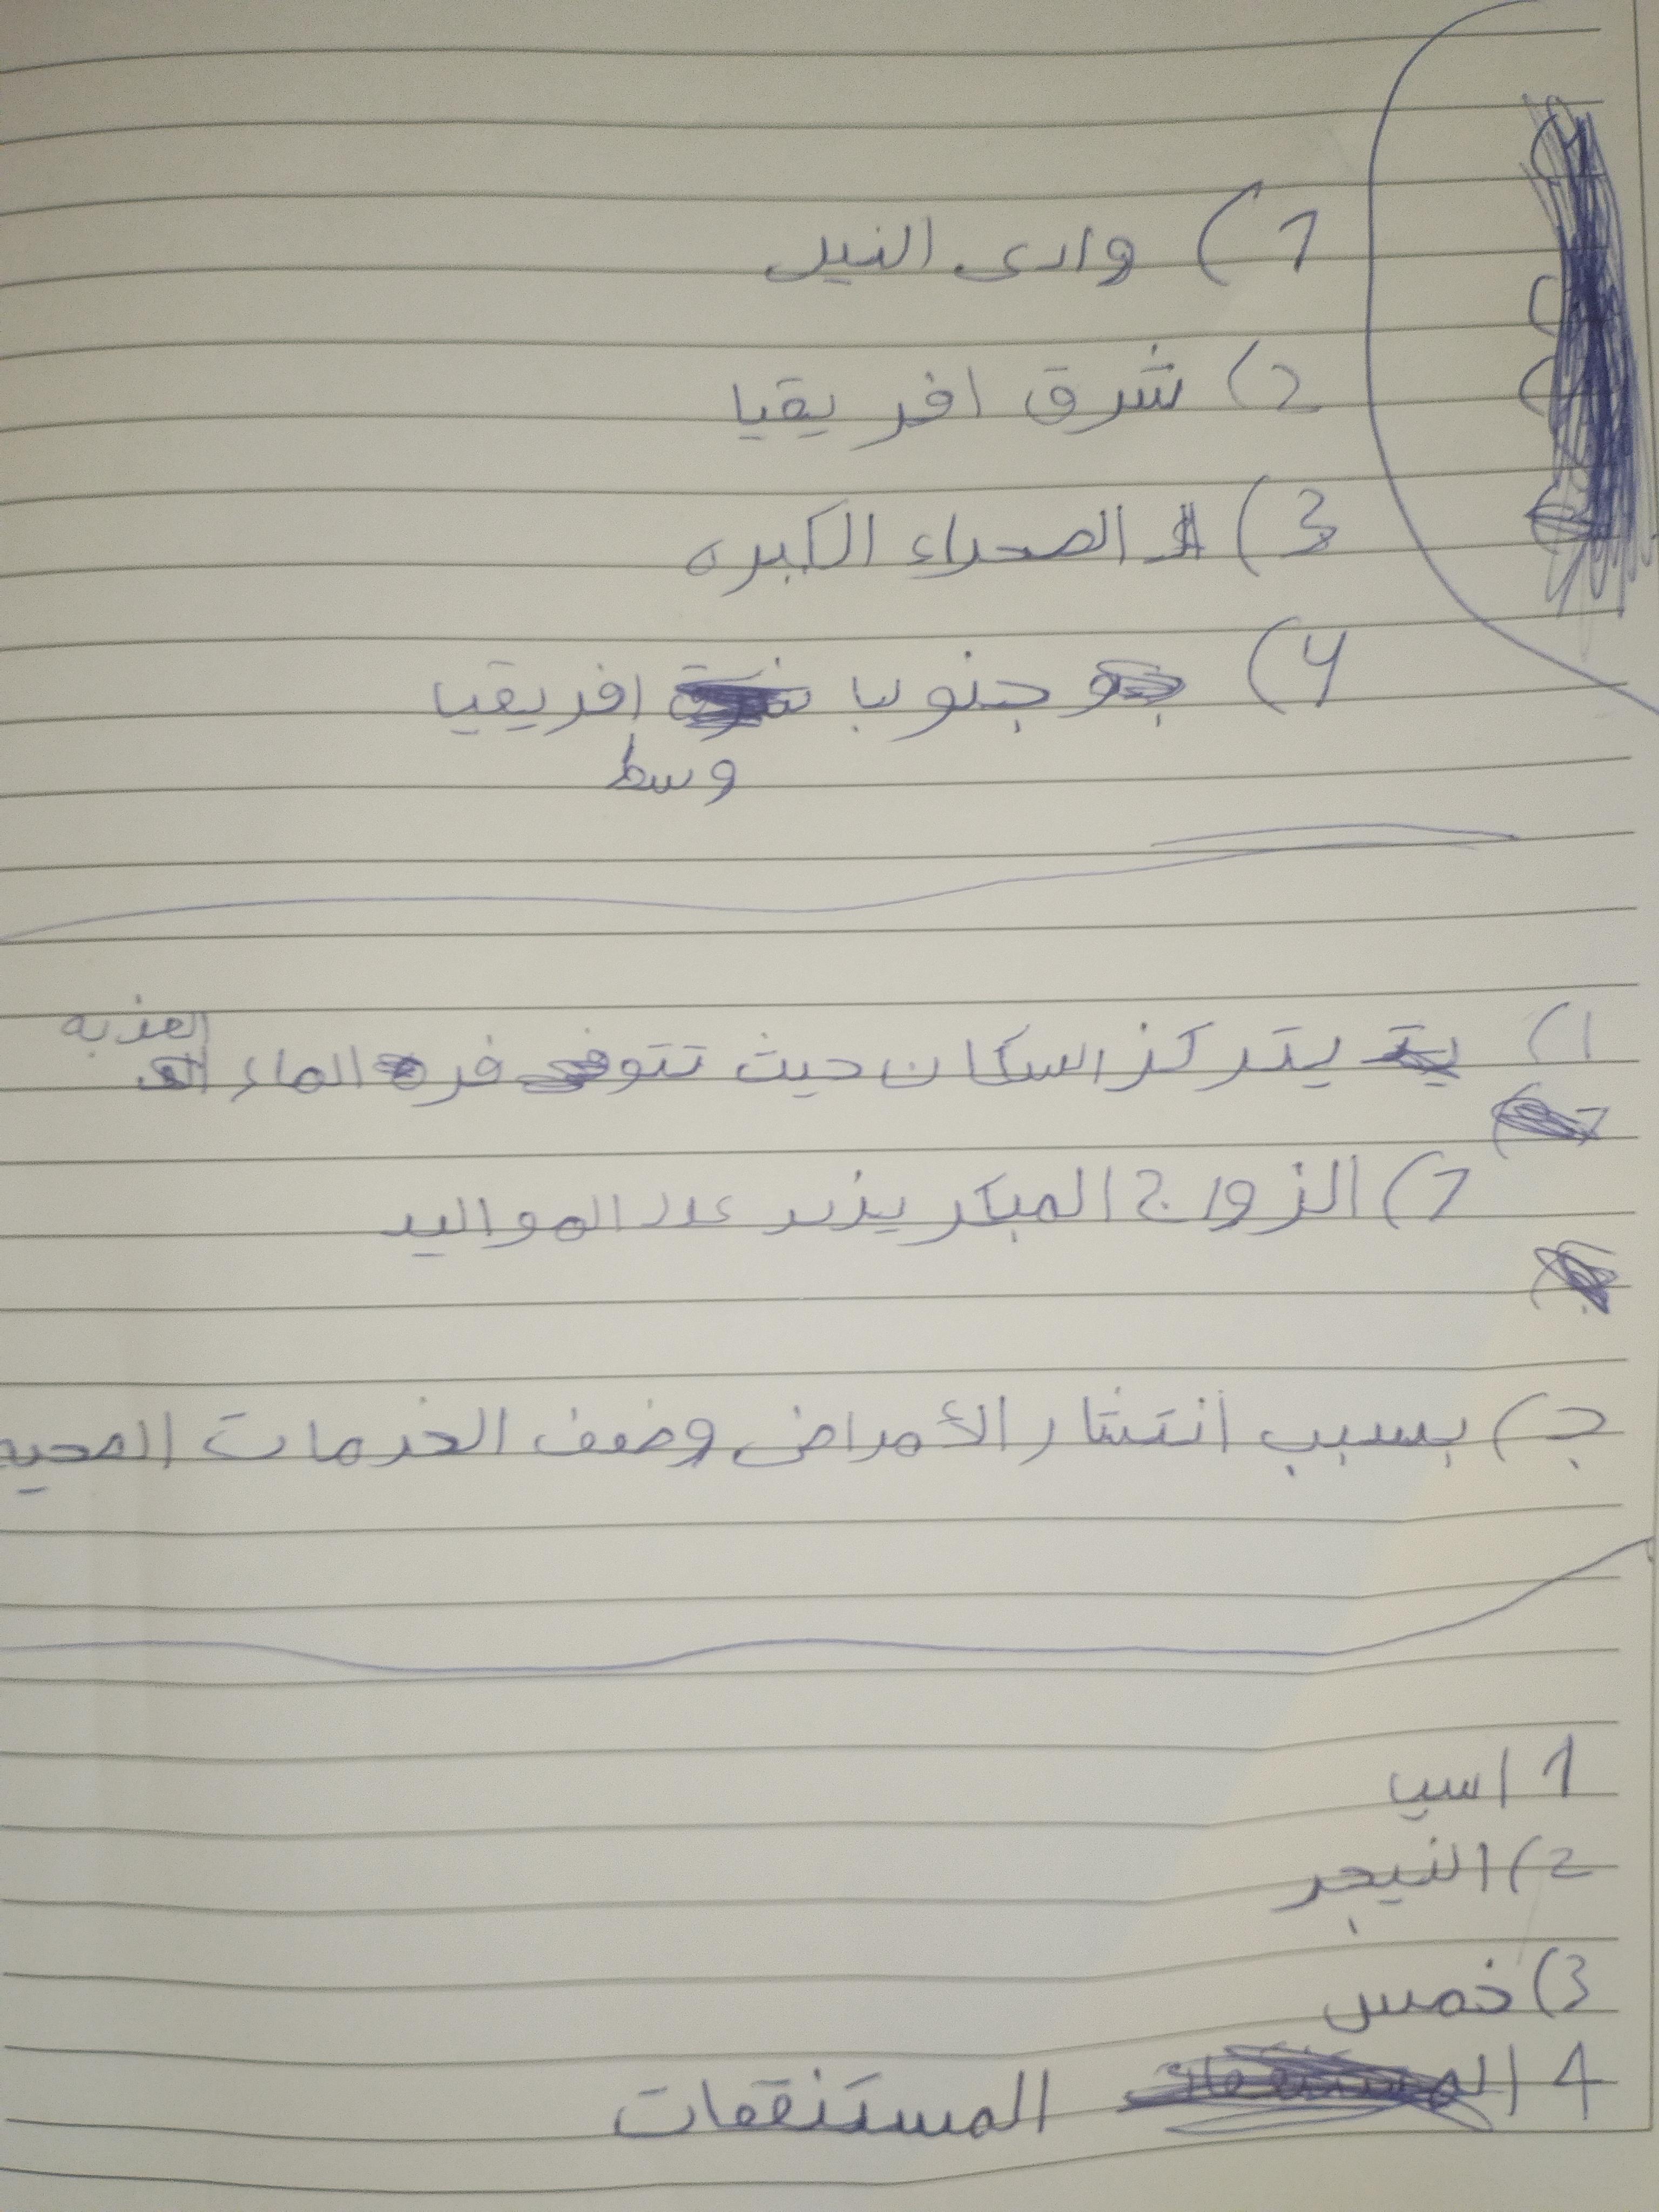 1) وادى النيل
2) شرق افريقيا
3) الصحراء الكبره
4) جنوبا افريقيا
وسط
العذبه
1) يتركز السكان حيث تتوفره الماء
2) الزواج المبكر يزيد عدد المواليد
ج) بسبب انتشار الأمراض وضعف الخدمات الصحيه
1 اسيا
2) النيجر
3) خمس
4 المستنقعات